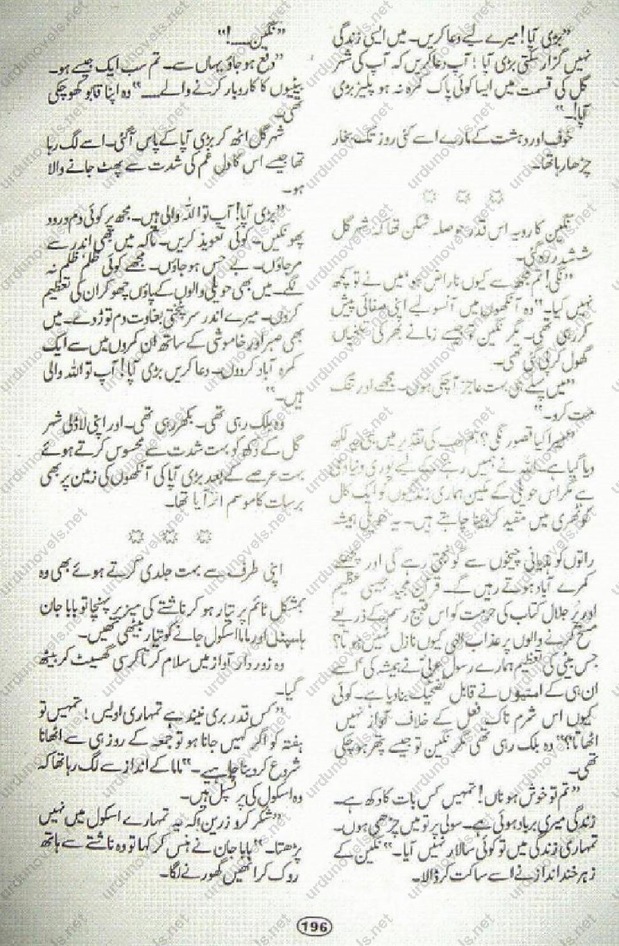 ”بڑی آپا! میرے لیے دعا کریں۔ میں ایسی زندگی
نہیں گزار سکتی بڑی آپا! آپ دعا کریں کہ آپ کی شہر
گل کی قسمت میں ایسا کوئی پاک کمرہ نہ ہو پلیز بڑی
آپا!۔“
خوف اور دہشت کے مارے اسے کئی روز تک بخار
چڑھا رہا تھا۔
نگین کا رویہ اس قدر حوصلہ شکن تھا کہ شہر گل
ششدر رہ گئی۔
”نگی! تم مجھ سے کیوں ناراض ہو میں نے تو کچھ
نہیں کیا۔“ وہ آنکھوں میں آنسو لیے اپنی صفائی پیش
کر رہی تھی۔ مگر نگین تو جیسے زمانے بھر کی تلخیاں
گھول کر پی گئی تھی۔
”میں پہلے ہی بہت عاجز آ چکی ہوں۔ مجھے اور تنگ
مت کرو۔“
”میرا کیا قصور نگی؟ ہم سب کی تقدیر میں یہی لکھ
دیا گیا ہے۔ اللہ نے ہمیں رہنے کے لیے پوری دنیا دی
ہے مگر اس حویلی کے مکین ہماری زندگیوں کو ایک کال
کوٹھری میں مقید کر دینا چاہتے ہیں۔ یہ حویلی ہمیشہ
راتوں کو ہذیانی چیخوں سے گونجتی رہے گی اور پچھلے
کمرے آباد ہوتے رہیں گے۔ قرآن مجید جیسی عظیم
اور پر جلال کتاب کی حرمت کو اس قبیح رسم کے ذریعے
مسخ کرنے والوں پر عذاب الٰہی کیوں نازل نہیں ہوتا؟
جس بیٹی کی تعظیم ہمارے رسول عربی نے ہمیشہ کی اسے
ان ہی کے امتیوں نے قابل تضحیک بنا دیا ہے۔ کوئی
کیوں اس شرم ناک فعل کے خلاف آواز نہیں
اٹھاتا؟“ وہ بلک رہی تھی مگر نگین تو جیسے پتھر ہو چکی
تھی۔
”تم تو خوش ہو ناں! تمہیں کس بات کا دکھ ہے۔
زندگی میری برباد ہوئی ہے۔ سولی پر تو میں چڑھی ہوں۔
تمہاری زندگی میں تو کوئی سالار نہیں آیا۔“ نگین کے
زہر خند انداز نے اسے ساکت کر ڈالا۔
”نگین۔۔۔!“
”دفع ہو جاؤ یہاں سے۔ تم سب ایک جیسے ہو۔
بیٹیوں کا کاروبار کرنے والے۔۔۔“ وہ اپنا قابو کھو چکی
تھی۔
شہر گل اٹھ کر بڑی آپا کے پاس آ گئی۔ اسے لگ رہا
تھا جیسے اس کا دل غم کی شدت سے پھٹ جانے والا
ہو۔
”بڑی آپا! آپ تو اللہ والی ہیں۔ مجھ پر کوئی دم درود
پھونکیں۔ کوئی تعویذ کریں۔ تاکہ میں بھی اندر سے
مر جاؤں۔ بے حس ہو جاؤں۔ مجھے کوئی ظلم، ظلم نہ
لگے۔ میں بھی حویلی والوں کے پاؤں چھو کر ان کی تعظیم
کروں۔ میرے اندر سر پٹختی بغاوت دم توڑ دے۔ میں
بھی صبر اور خاموشی کے ساتھ ان کمروں میں سے ایک
کمرہ آباد کر دوں۔ دعا کریں بڑی آپا! آپ تو اللہ والی
ہیں۔“
وہ بلک رہی تھی۔ بکھر رہی تھی۔ اور اپنی لاڈلی شہر
گل کے دکھ کو بہت شدت سے محسوس کرتے ہوئے
بہت عرصے کے بعد بڑی آپا کی آنکھوں کی زمین پر بھی
برسات کا موسم اتر آیا تھا۔
اپنی طرف سے بہت جلدی کرتے ہوئے بھی وہ
بمشکل ٹائم پر تیار ہو کر ناشتے کی میز پر پہنچا تو بابا جان
ہاسپٹل اور ماما اسکول جانے کو تیار بیٹھی تھیں۔
وہ زور دار آواز میں سلام کرتا کرسی گھسیٹ کر بیٹھ
گیا۔
”کس قدر بری نیند ہے تمہاری اویس! تمہیں تو
ہفتہ کو اگر کہیں جانا ہو تو جمعہ کے روز ہی سے اٹھانا
شروع کر دینا چاہیے۔“ ماما کے انداز سے لگ رہا تھا کہ
وہ اسکول کی پرنسپل ہیں۔
”شکر کرو زرین! کہ یہ تمہارے اسکول میں نہیں
پڑھتا۔“ بابا جان نے ہنس کر کہا تو وہ ناشتے سے ہاتھ
روک کر انہیں گھورنے لگا۔
196
urdunovels.net